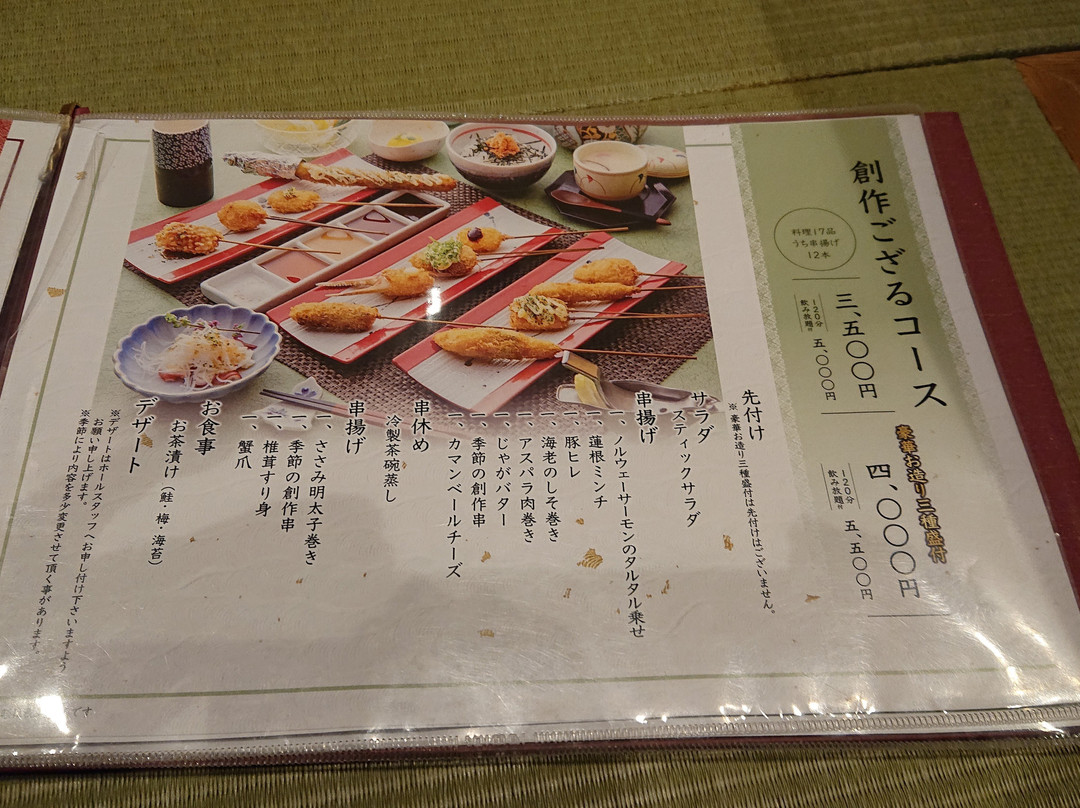 創作ござるコース
料理17品
うち串揚げ
12本
三、五〇〇円
120分
飲み放題付
五、〇〇〇円
豪華お造り三種盛付
四、〇〇〇円
120分
飲み放題付
五、五〇〇円
先付け
※豪華お造り三種盛付は先付けはございません。
サラダ
スティックサラダ
串揚げ
一、ノルウェーサーモンのタルタル乗せ
一、蓮根ミンチ
一、豚ヒレ
一、海老のしそ巻き
一、アスパラ肉巻き
一、じゃがバター
一、季節の創作串
一、カマンベールチーズ
串休め
冷製茶碗蒸し
串揚げ
一、ささみ明太子巻き
一、季節の創作串
一、椎茸すり身
一、蟹爪
お食事
お茶漬け（鮭・梅・海苔）
デザート
※デザートはホールスタッフへお申し付け下さいますよう
お願い申し上げます。
※季節により内容を多少変更させて頂く事があります。
です